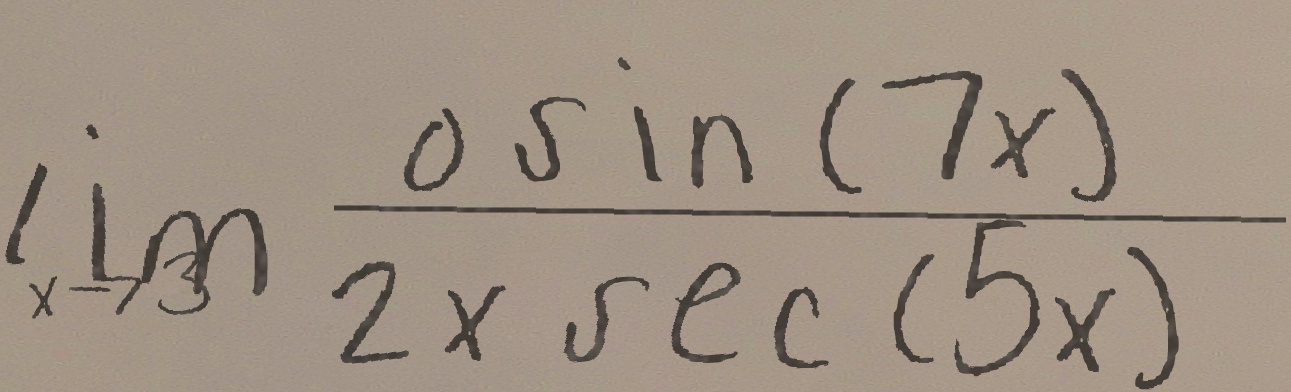 lim x→3 0 sin (7x)
2x sec (5x)